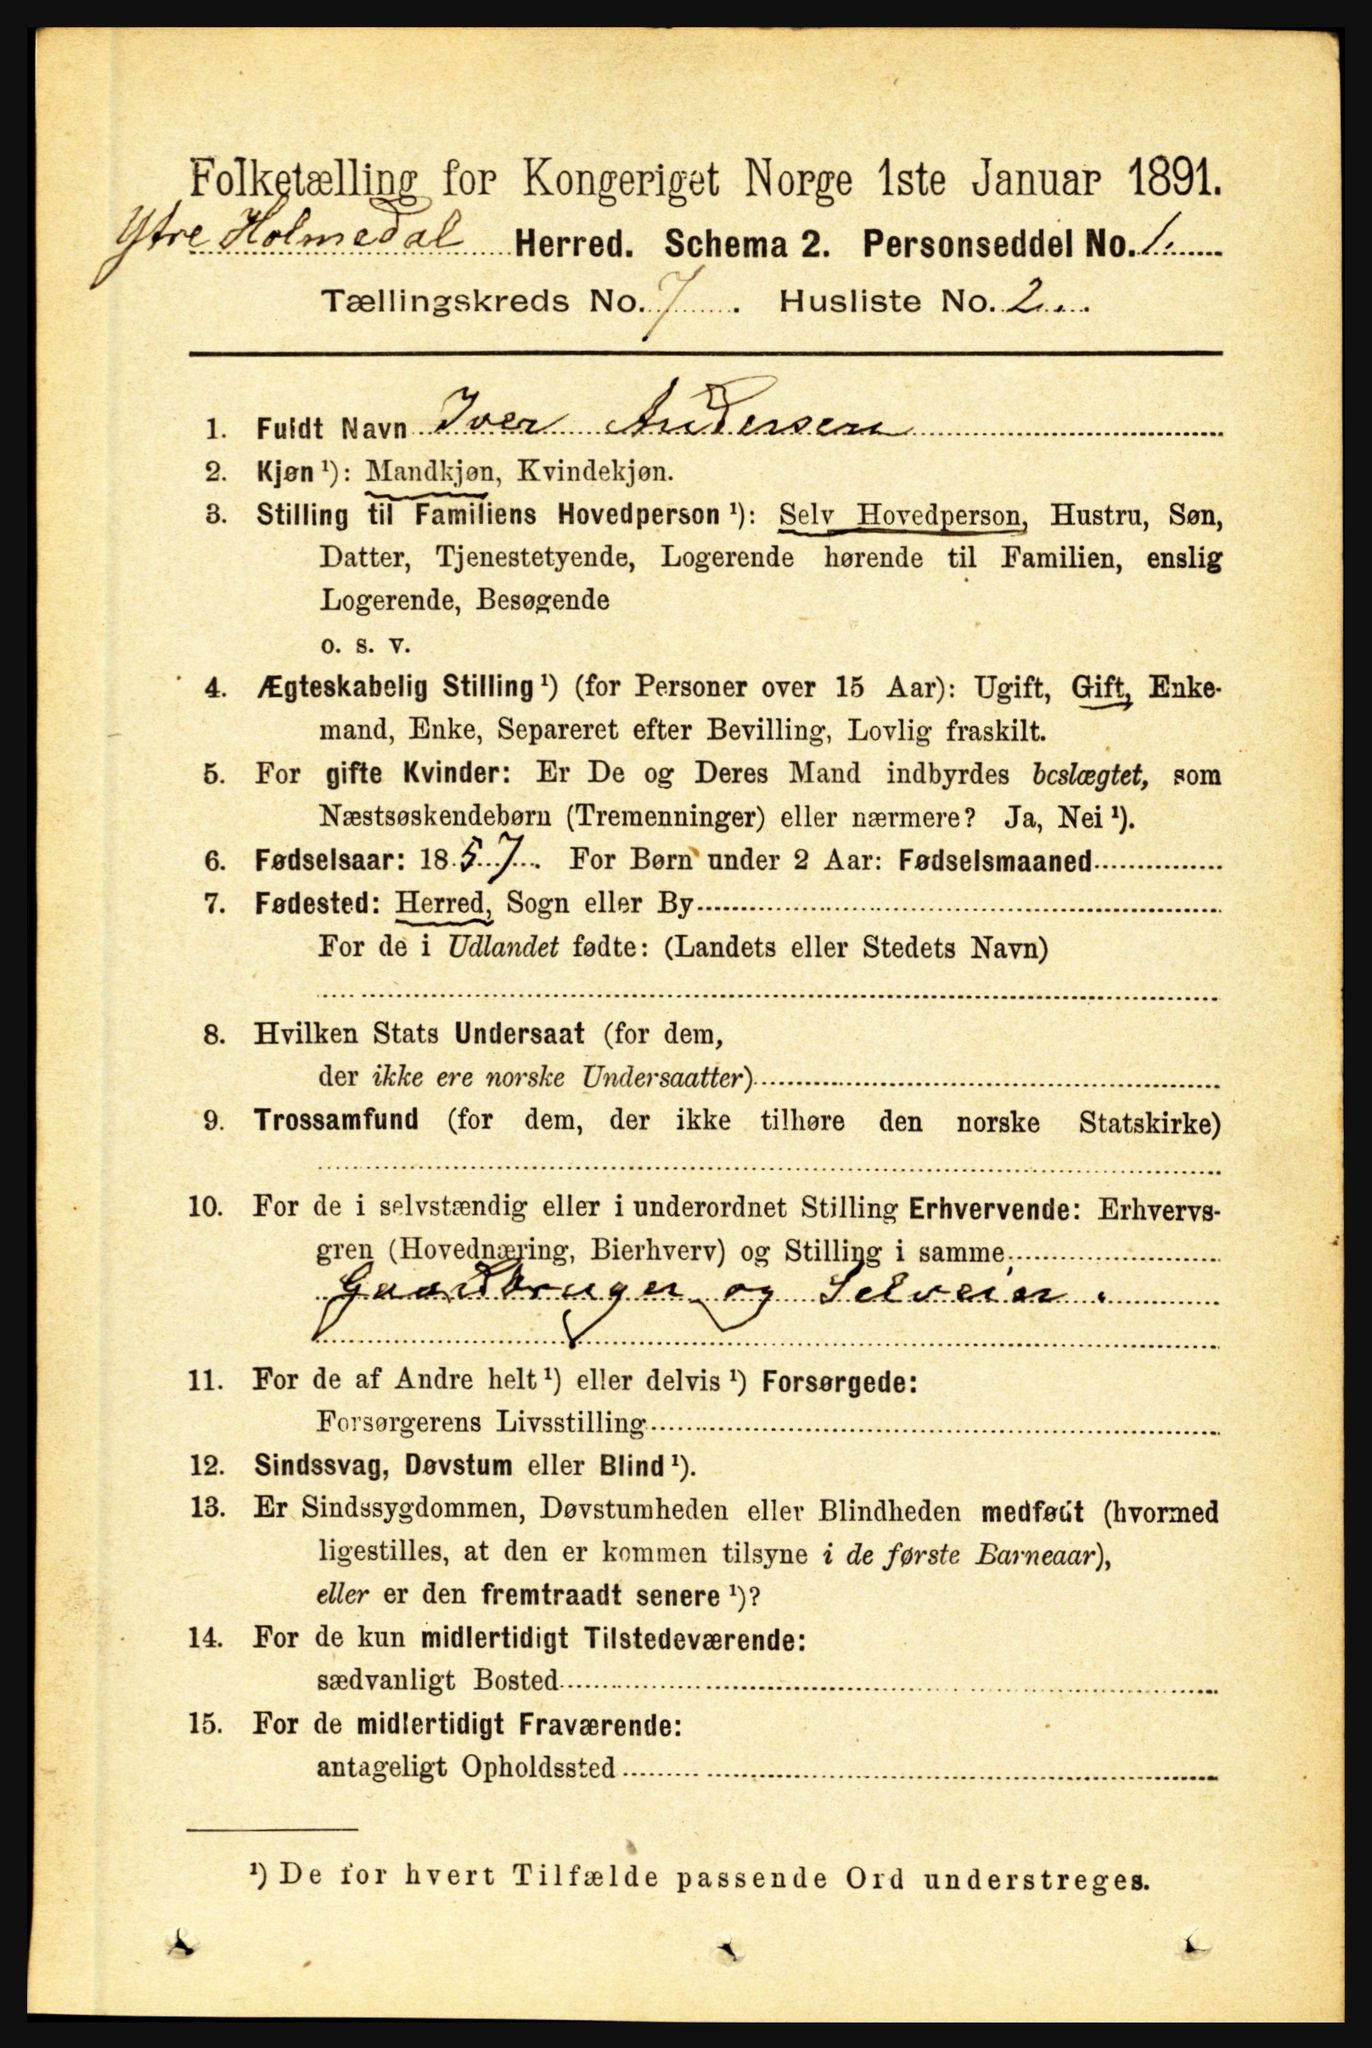 Folketælling for Kongeriget Norge 1ste Januar 1891.
Ytre Holmedal Herred. Schema 2. Personseddel No. 1.
Tællingskreds No. 7. Husliste No. 2.
1. Fuldt Navn Iver Andersen
2. Kjøn ¹): Mandkjøn, Kvindekjøn.
3. Stilling til Familiens Hovedperson ¹): Selv Hovedperson, Hustru, Søn,
Datter, Tjenestetyende, Logerende hørende til Familien, enslig
Logerende, Besøgende
o. s. v.
4. Ægteskabelig Stilling ¹) (for Personer over 15 Aar): Ugift, Gift, Enke-
mand, Enke, Separeret efter Bevilling, Lovlig fraskilt.
5. For gifte Kvinder: Er De og Deres Mand indbyrdes beslægtet, som
Næstsøskendebørn (Tremenninger) eller nærmere? Ja, Nei ¹).
6. Fødselsaar: 1857. For Børn under 2 Aar: Fødselsmaaned
7. Fødested: Herred, Sogn eller By
For de i Udlandet fødte: (Landets eller Stedets Navn)
8. Hvilken Stats Undersaat (for dem,
der ikke ere norske Undersaatter)
9. Trossamfund (for dem, der ikke tilhøre den norske Statskirke)
10. For de i selvstændig eller i underordnet Stilling Erhvervende: Erhvervs-
gren (Hovednæring, Bierhverv) og Stilling i samme
Gaardbruger og Selveier.
11. For de af Andre helt ¹) eller delvis ¹) Forsørgede:
Forsørgerens Livsstilling
12. Sindssvag, Døvstum eller Blind ¹).
13. Er Sindssygdommen, Døvstumheden eller Blindheden medfødt (hvormed
ligestilles, at den er kommen tilsyne i de første Barneaar),
eller er den fremtraadt senere ¹)?
14. For de kun midlertidigt Tilstedeværende:
sædvanligt Bosted
15. For de midlertidigt Fraværende:
antageligt Opholdssted
¹) De for hvert Tilfælde passende Ord understreges.